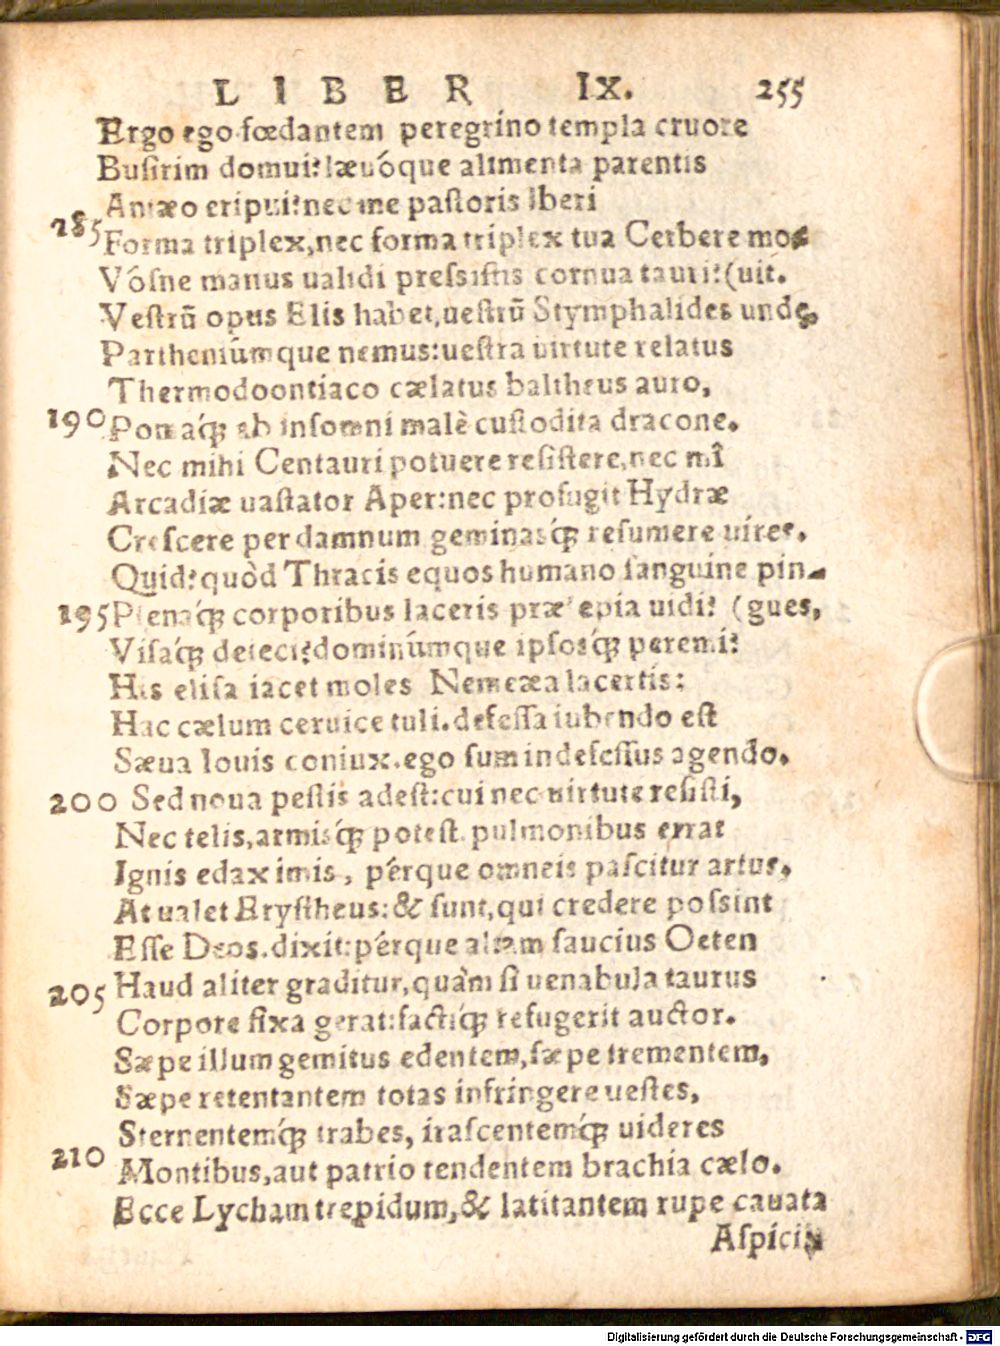 LIBER IX. 255
Ergo ego fœdantem peregrino templa cruore
Busirim domui? læuóque alimenta parentis
Antæo eripui? nec me pastoris Iberi
185 Forma triplex, nec forma triplex tua Cerbere mo-
Vósne manus ualidi pressistis cornua tauri? (uit.
Vestrũ opus Elis habet, uestrũ Stymphalides undę,
Partheniúmque nemus: uestra uirtute relatus
Thermodoontiaco cælatus baltheus auro,
190 Pomaq́ꝫ ab insomni malè custodita dracone.
Nec mihi Centauri potuere resistere, nec mî
Arcadiæ uastator Aper: nec profugit Hydræ
Crescere per damnum geminasq́ꝫ resumere uires.
Quid? quòd Thracis equos humano sanguine pin-
195 Plenaq́ꝫ corporibus laceris præsepia uidi? (gues,
Visaq́ꝫ deieci? dominúmque ipsosq́ꝫ peremi?
His elisa iacet moles Nemeæa lacertis:
Hac cælum ceruice tuli. defessa iubendo est
Sæua Iouis coniux. ego sum indefessus agendo.
200 Sed noua pestis adest: cui nec uirtute resisti,
Nec telis, armisq́ꝫ potest. pulmonibus errat
Ignis edax imis, pérque omneis pascitur artus.
At ualet Erystheus: & sunt, qui credere possint
Esse Deos. dixit: pérque altam saucius Oeten
205 Haud aliter graditur, quàm si uenabula taurus
Corpore fixa gerat: factiq́ꝫ refugerit auctor.
Sæpe illum gemitus edentem, sæpe trementem,
Sæpe retentantem totas infringere uestes,
Sternentemq́ꝫ trabes, irascentemq́ꝫ uideres
210 Montibus, aut patrio tendentem brachia cælo.
Ecce Lycham trepidum, & latitantem rupe cauata
Aspicit
Digitalisierung gefördert durch die Deutsche Forschungsgemeinschaft - DFG